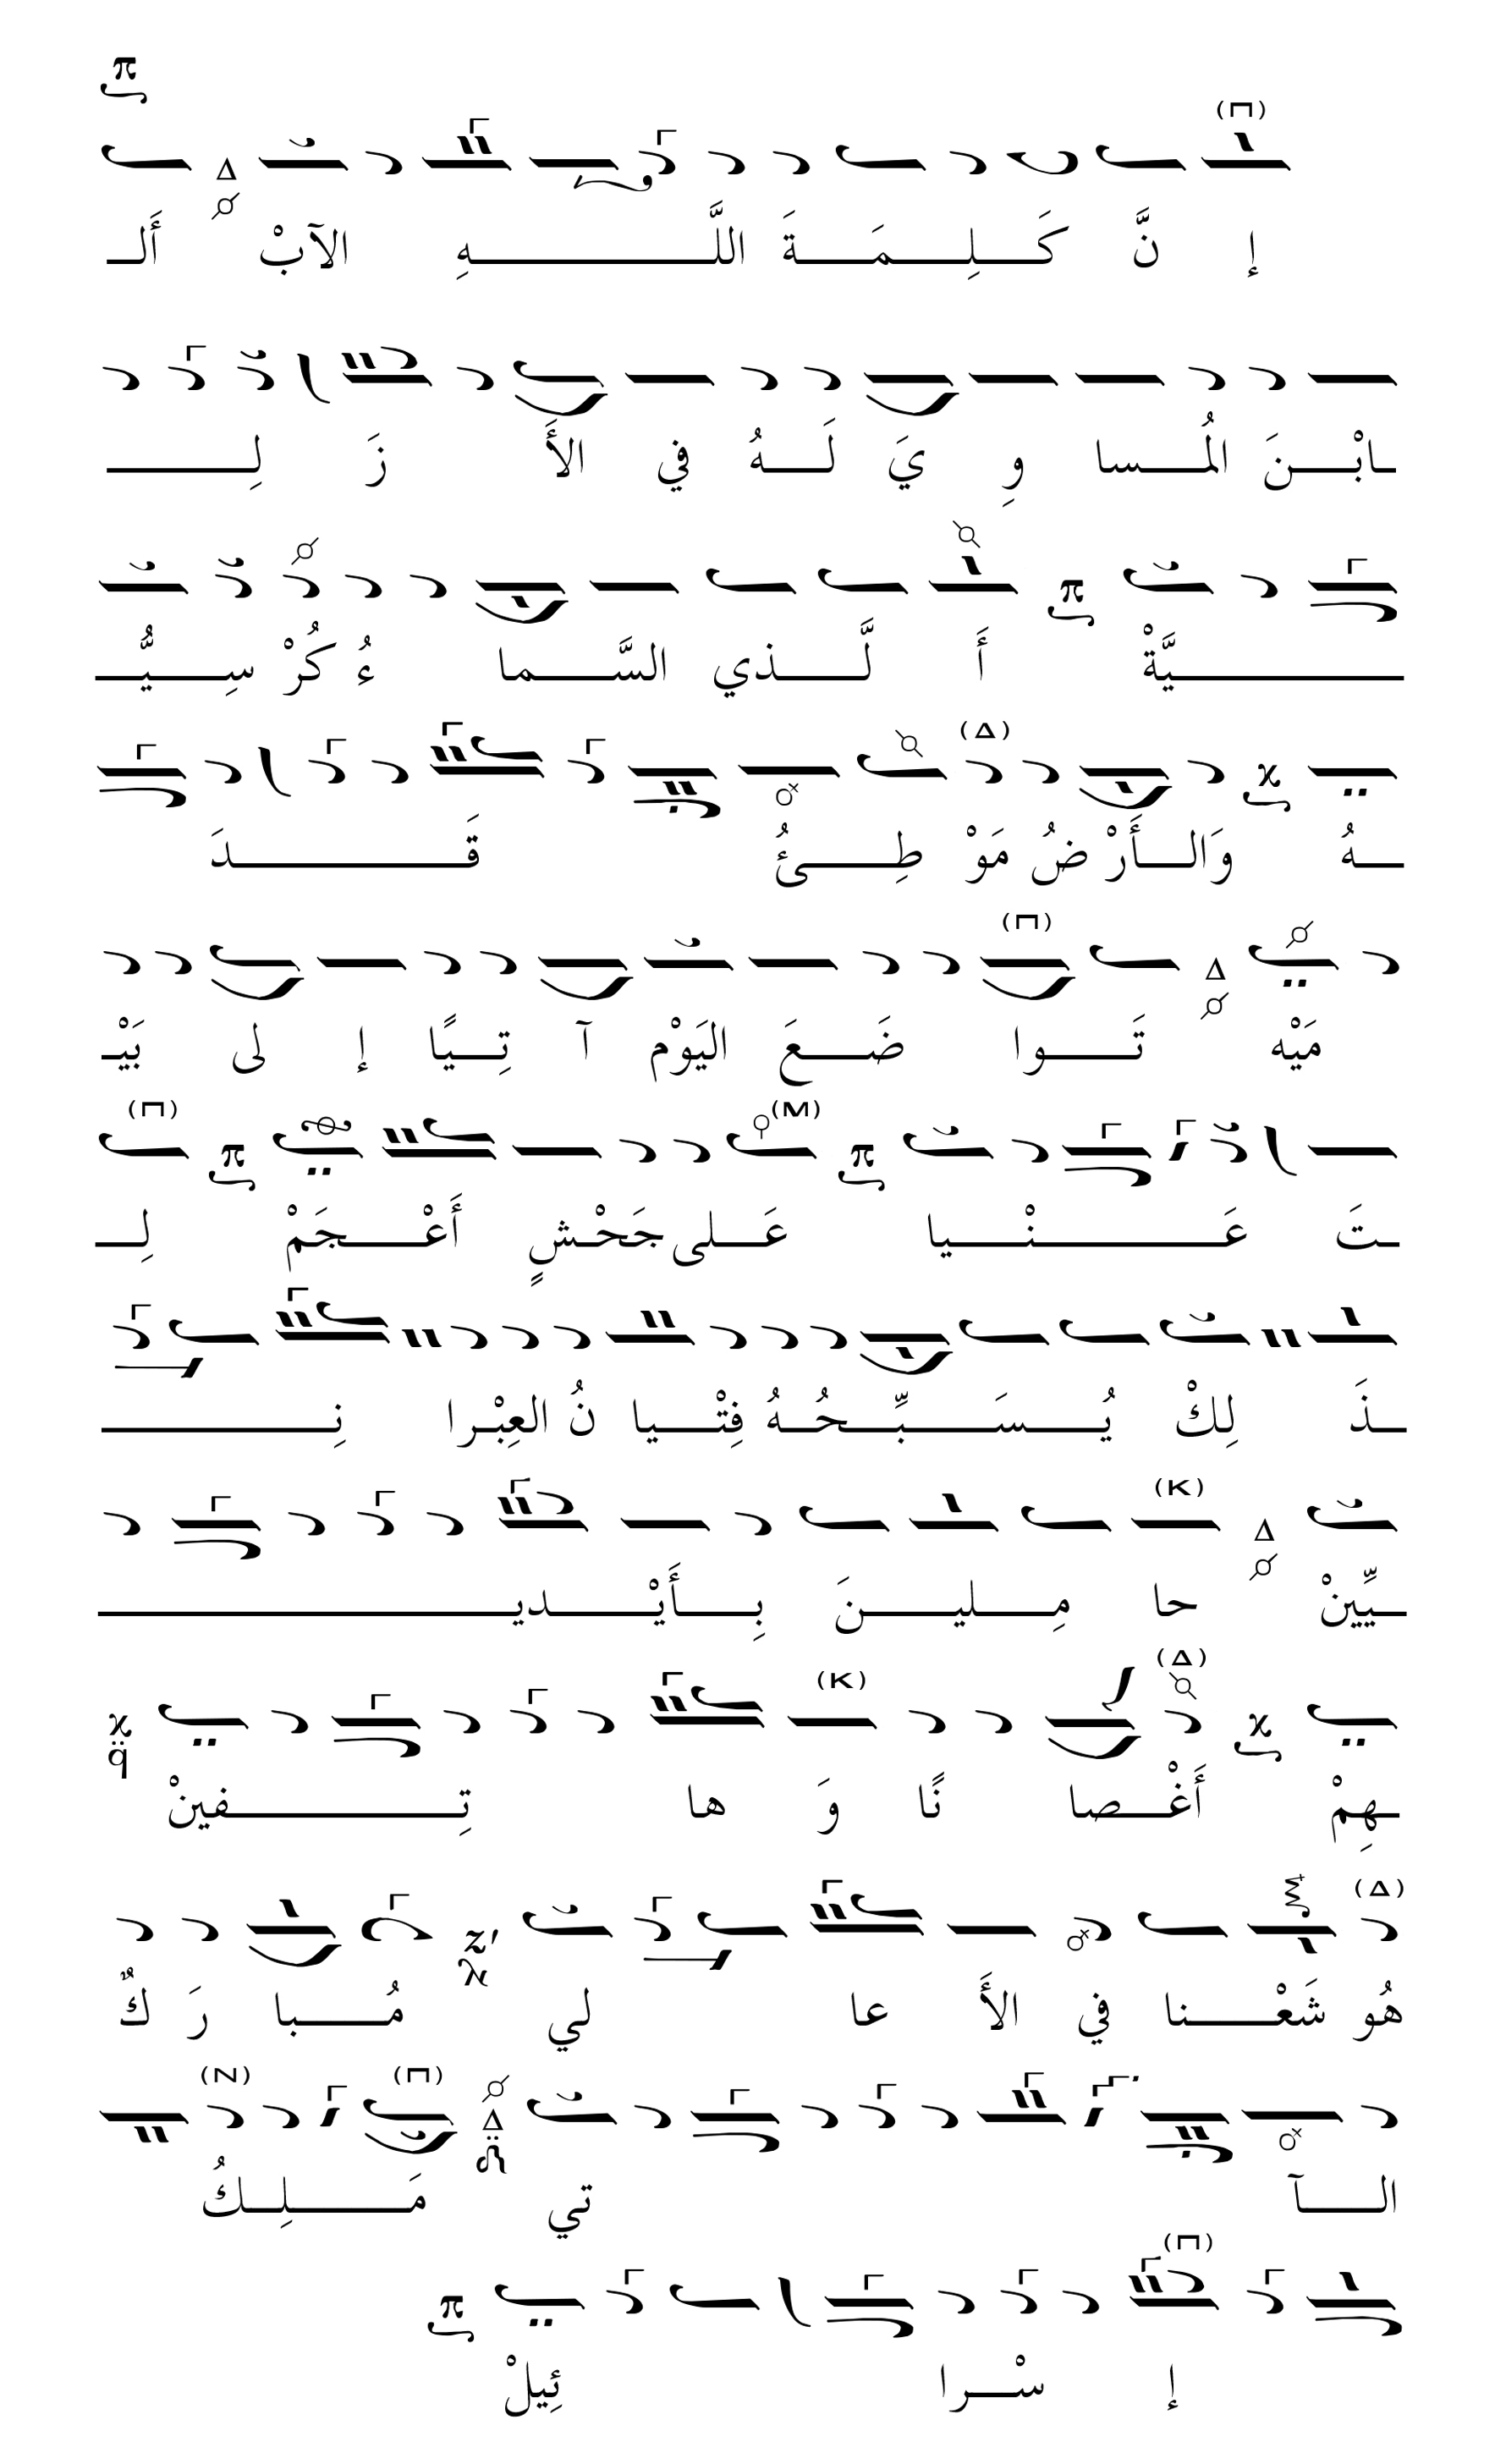 إنَّ كَلِمَةَ اللَّهِ الآبْ أَلـ
ـابْنَ المُساوِيَ لَهُ في الأَزَلِـ
ـيَّةْ أَلَّذي السَّماءُ كُرْسِيُّـ
ـهُ وَالأَرْضُ مَوْطِئُ قَدَ
مَيْه تَواضَعَ اليَوْم آتِيًا إلى بَيْـ
ـتَ عَنْيا عَلى جَحْشٍ أَعْجَمْ لِـ
ـذَلِكْ يُسَبِّحُهُ فِتْيانُ العِبْرانِـ
ـيِّينْ حامِلينَ بِأَيْديـ
ـهِمْ أَغْصانًا وَهاتِفينْ
هُوشَعْنا في الأَعالي مُبارَكٌ
الآتي مَلِكُ
إسْرائِيلْ